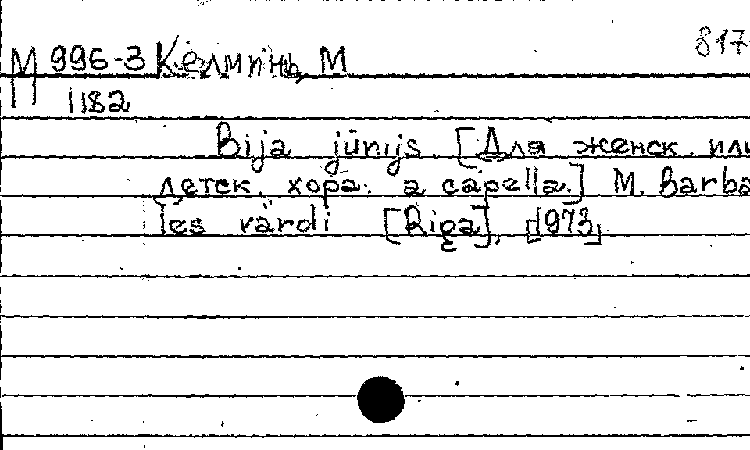 817
М 996-3 Келминь, М
1182
Bija jūnijs [Для женск. или
детск. хора. a capella.] M. Barba
les vārdi [Riga], [1973]